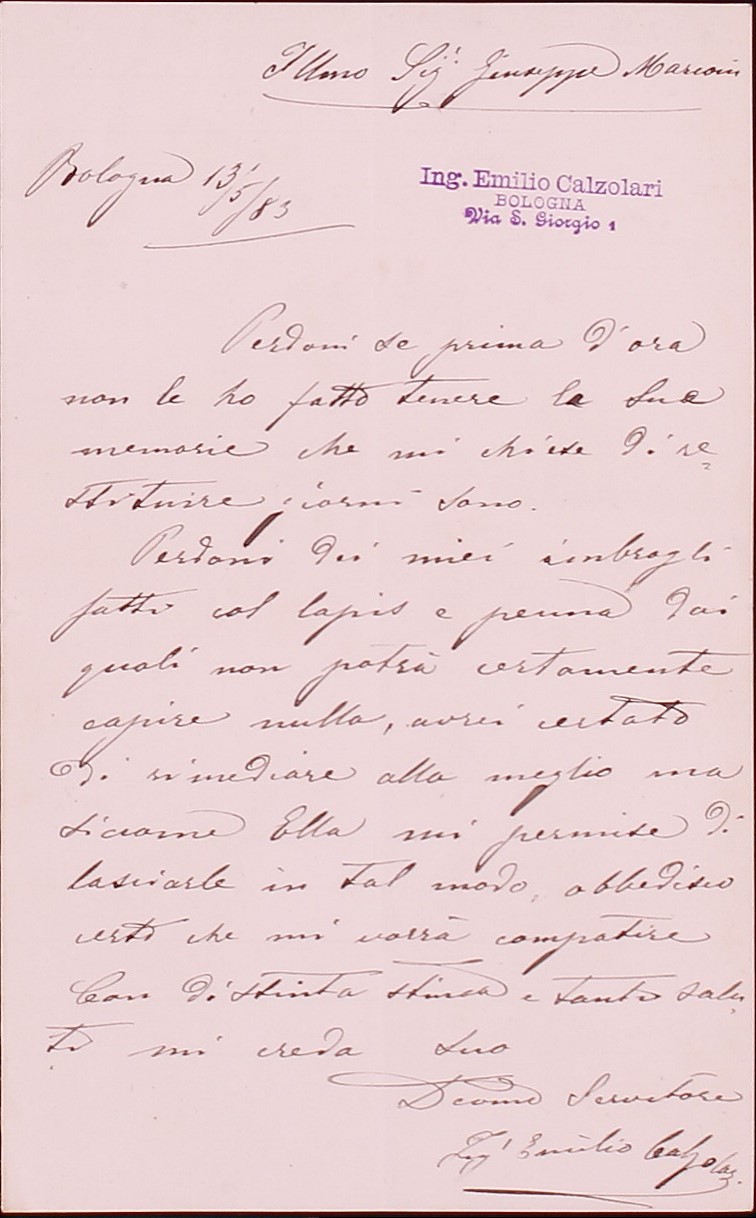 Illmo Sig.r Giuseppe Marconi
Bologna 13/5/83
Ing. Emilio Calzolari
BOLOGNA
Via S. Giorgio 1
Perdoni se prima d'ora
non le ho fatto tenere le sue
memorie che mi chiese di re=
stituire giorni sono.
Perdoni dei miei imbrogli
fatti col lapis e penna dai
quali non potrà certamente
capire nulla, avrei certato
di rimediare alla meglio ma
siccome Ella mi permise di
lasciarle in tal modo, obbedisco
certo che mi vorrà compatire
Con distinta stima e tanti salu=
ti mi creda suo
Devmo Servitore
Ing.r Emilio Calzolari